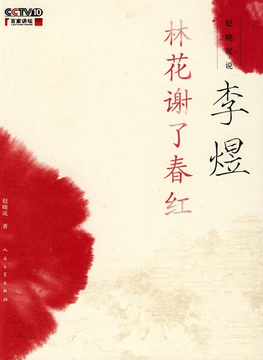 CCTV10
百家讲坛
赵晓岚说
李煜
林花谢了春红
赵晓岚 著
人民文学出版社